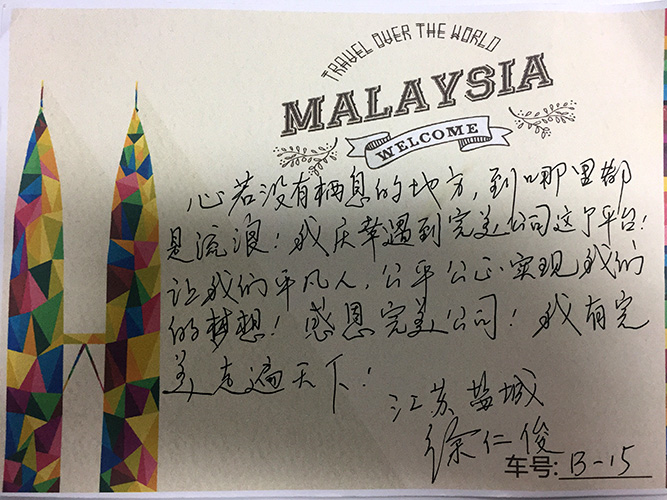 TRAVEL OVER THE WORLD
MALAYSIA
WELCOME
心若没有栖息的地方,到哪里都
是流浪!我庆幸遇到完美公司这个平台!
让我们平凡人,公平公正实现我们
的梦想!感恩完美公司!我有完
美走遍天下!
江苏盐城
徐仁俊
车号:B-15